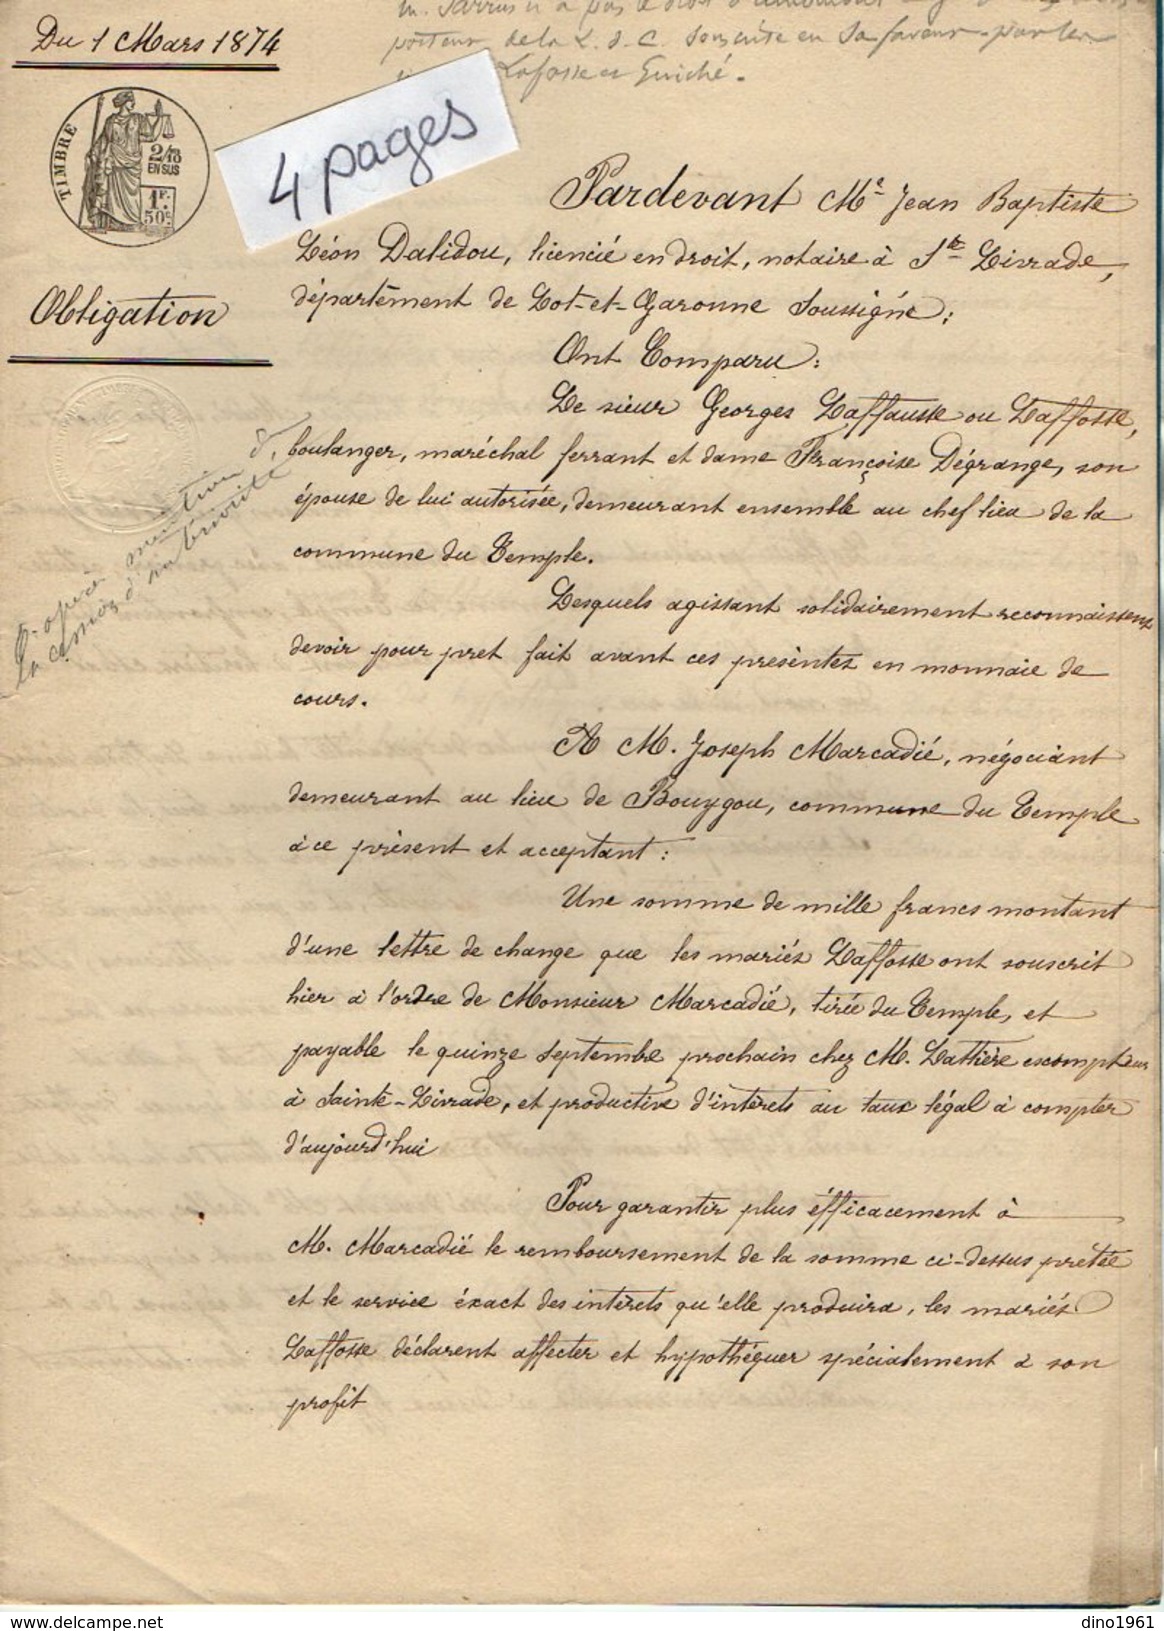 Du 1 Mars 1874
porteur de la L. d. C. souscrite en sa faveur par les
Lafosse et Guiché.
4 pages
TIMBRE
2/10
EN SUS
1F.
50c.
Obligation
Pardevant Me Jean Baptiste
Léon Dalidou, licencié en droit, notaire à Ste Livrade,
département de Lot-et-Garonne soussigné;
Ont Comparu:
Le sieur Georges Laffausse ou Laffosse,
boulanger, maréchal ferrant et dame Françoise Dégrange, son
épouse de lui autorisée, demeurant ensemble au chef lieu de la
commune du Temple.
Lesquels agissant solidairement reconnaissent
devoir pour pret fait avant ces présentes en monnaie de
cours.
A M. Joseph Marcadié, négociant
demeurant au lieu de Bouygou, commune du Temple
à ce présent et acceptant:
Une somme de mille francs montant
d'une lettre de change que les mariés Laffosse ont souscrit
hier à l'ordre de Monsieur Marcadié, tirée du Temple, et
payable le quinze septembre prochain chez M. Lattière escompteur
à Sainte-Livrade, et productive d'intérets au taux légal à compter
d'aujourd'hui
Pour garantir plus éfficacement à
M. Marcadié le remboursement de la somme ci-dessus prêtée
et le service éxact des intérets qu'elle produira, les mariés
Laffosse déclarent affecter et hypothéquer spécialement à son
profit
www.delcampe.net
dino1961